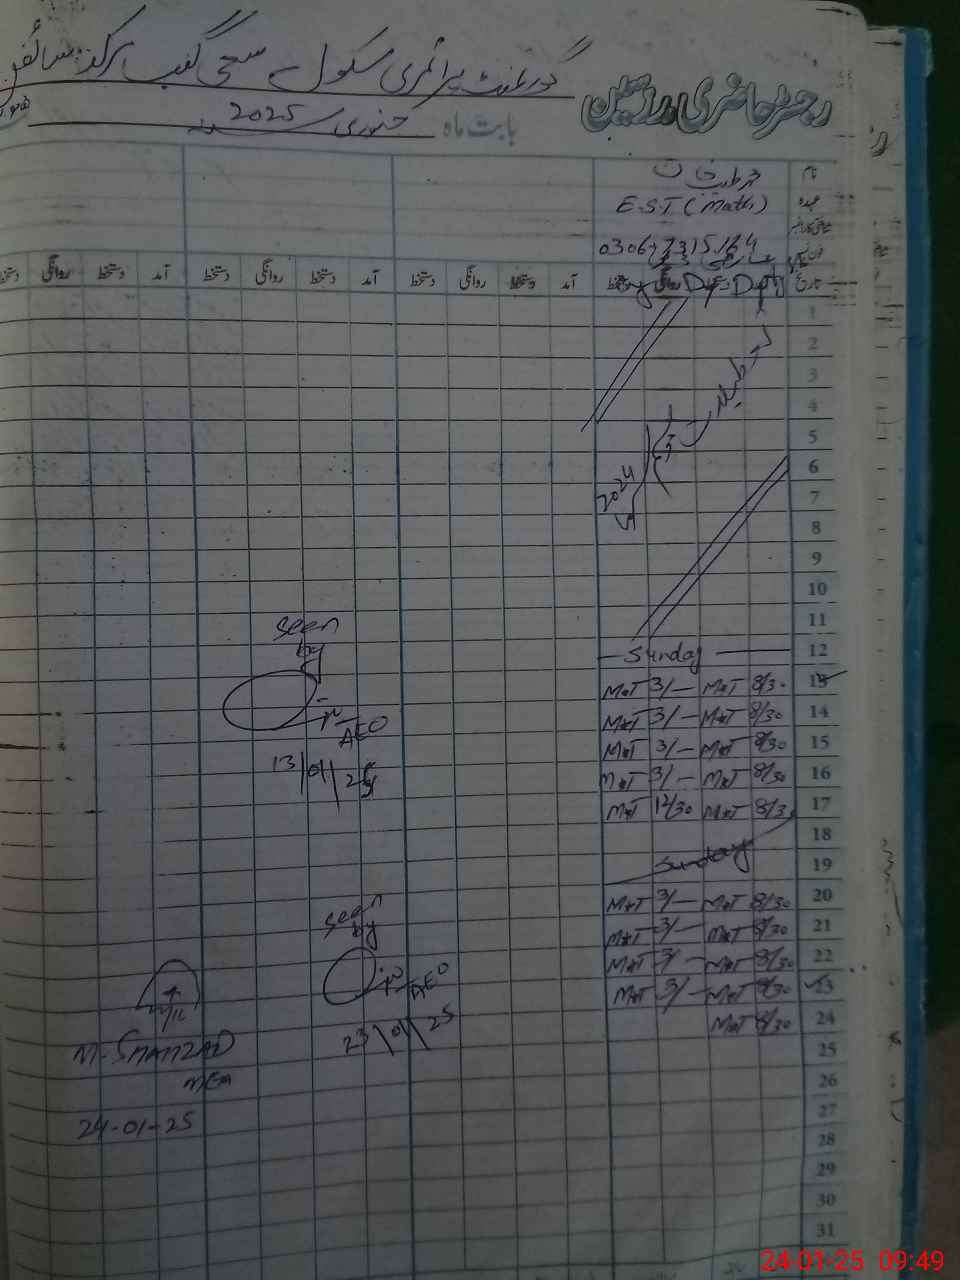 رجسٹر حاضری مدرسین گورنمنٹ پرائمری سکول
بابت ماہ جنوری 2025
نام
عہدہ E.S.T (Math)
تاریخ آمد دستخط روانگی دستخط آمد دستخط روانگی دستخط آمد دستخط روانگی دستخط آمد دستخط روانگی دستخط
1
2
3
4
5
6
7
8
9
10
11
2024
12 Sunday
13 8/30 MAT 3/- MAT
14 8/30 MAT 3/- MAT
15 8/30 MAT 3/- MAT
16 8/30 MAT 3/- MAT
17 8/30 MAT 12/30 MAT
18
19 Sunday
20 8/30 MAT 3/- MAT
21 8/30 MAT 3/- MAT
22 8/30 MAT 3/- MAT
23 8/30 MAT 3/- MAT
24 8/30 MAT
25
26
27
28
29
30
31
seen
by
AEO
13/01/25
seen
by
AEO
23/01/25
M. SHAHZAD
MEA
24-01-25
24-01-25 09:49